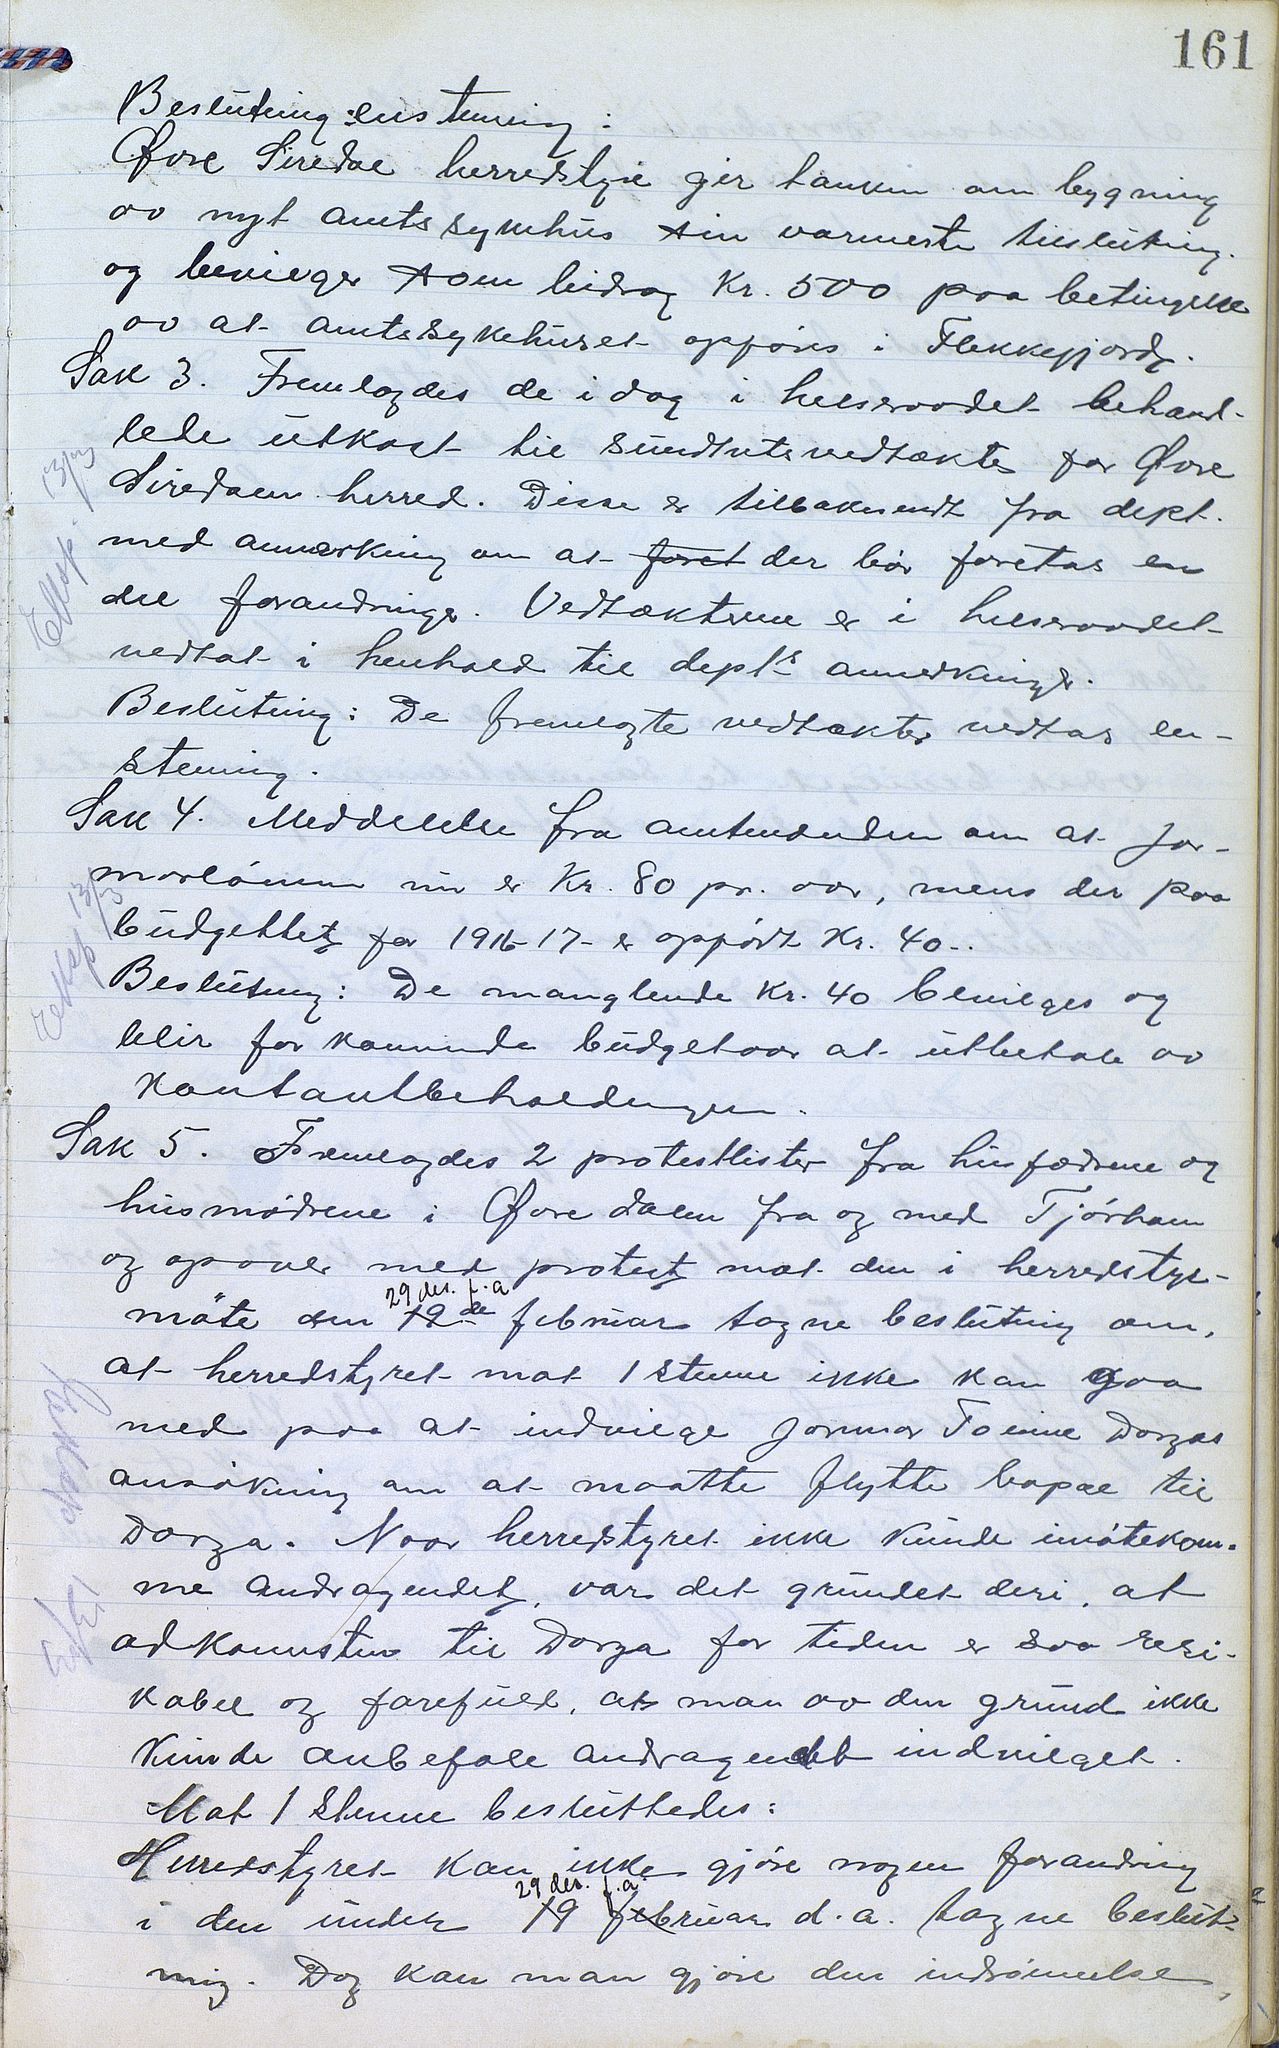 161
Beslutning: enstemmig:
Øvre Siredal herredstyre gir tanken om bygning
av nyt amtssykehus sin varmeste tilslutning
og bevilger som bidrag Kr. 500 paa betingelse
av at amtssykehuset opføres i Flekkefjord.
Sak 3. Fremlagdes de idag i helseraadet behand-
lede utkast til sundhetsvedtækter for Øvre
Siredalen herred. Disse er tilbakesendt fra dept.
med anmerkning om at foret der bør foretas en
del forandringer. Vedtækterne er i helseraadet
vedtat i henhold til depts anmerkninger.
Beslutning: De fremlagte vedtækter vedtas en-
stemmig.
Sak 4. Meddelelse fra amtmanden om at jor-
morlønnen nu er Kr. 80 pr. aar, mens der paa
budgettet for 1916-17 er opført Kr. 40.
Beslutning: De manglende Kr. 40 bevilges og
blir for kommende budgetaar at utbetale av
Kontantbeholdningen.
Sak 5. Fremlagdes 2 protestlister fra husfædrene og
husmødrene i Øvre dalen fra og med Tjørhom
og opover med protest mot den i herredstyre-
29 des. f.a
møte den 19de februar tagne beslutning om,
at herredstyret mot 1 stemme ikke kan gaa
med paa at indvilge jormor Tomine Dorgas
ansøkning om at maatte flytte bopæl til
Dorga. Naar herredstyret ikke kunde imøtekom-
me andragendet, var det grundet deri, at
adkomsten til Dorga for tiden er saa resi-
kabel og farefuld, at man av den grund ikke
kunde anbefale andragendet indvilget.
Mot 1 stemme besluttedes:
Herredstyret kan ikke gjøre nogen forandring
29 des. f.a.
i den under 19 februar d.a. tagne beslut-
ning. Dog kan man gjøre den indrømmelse,